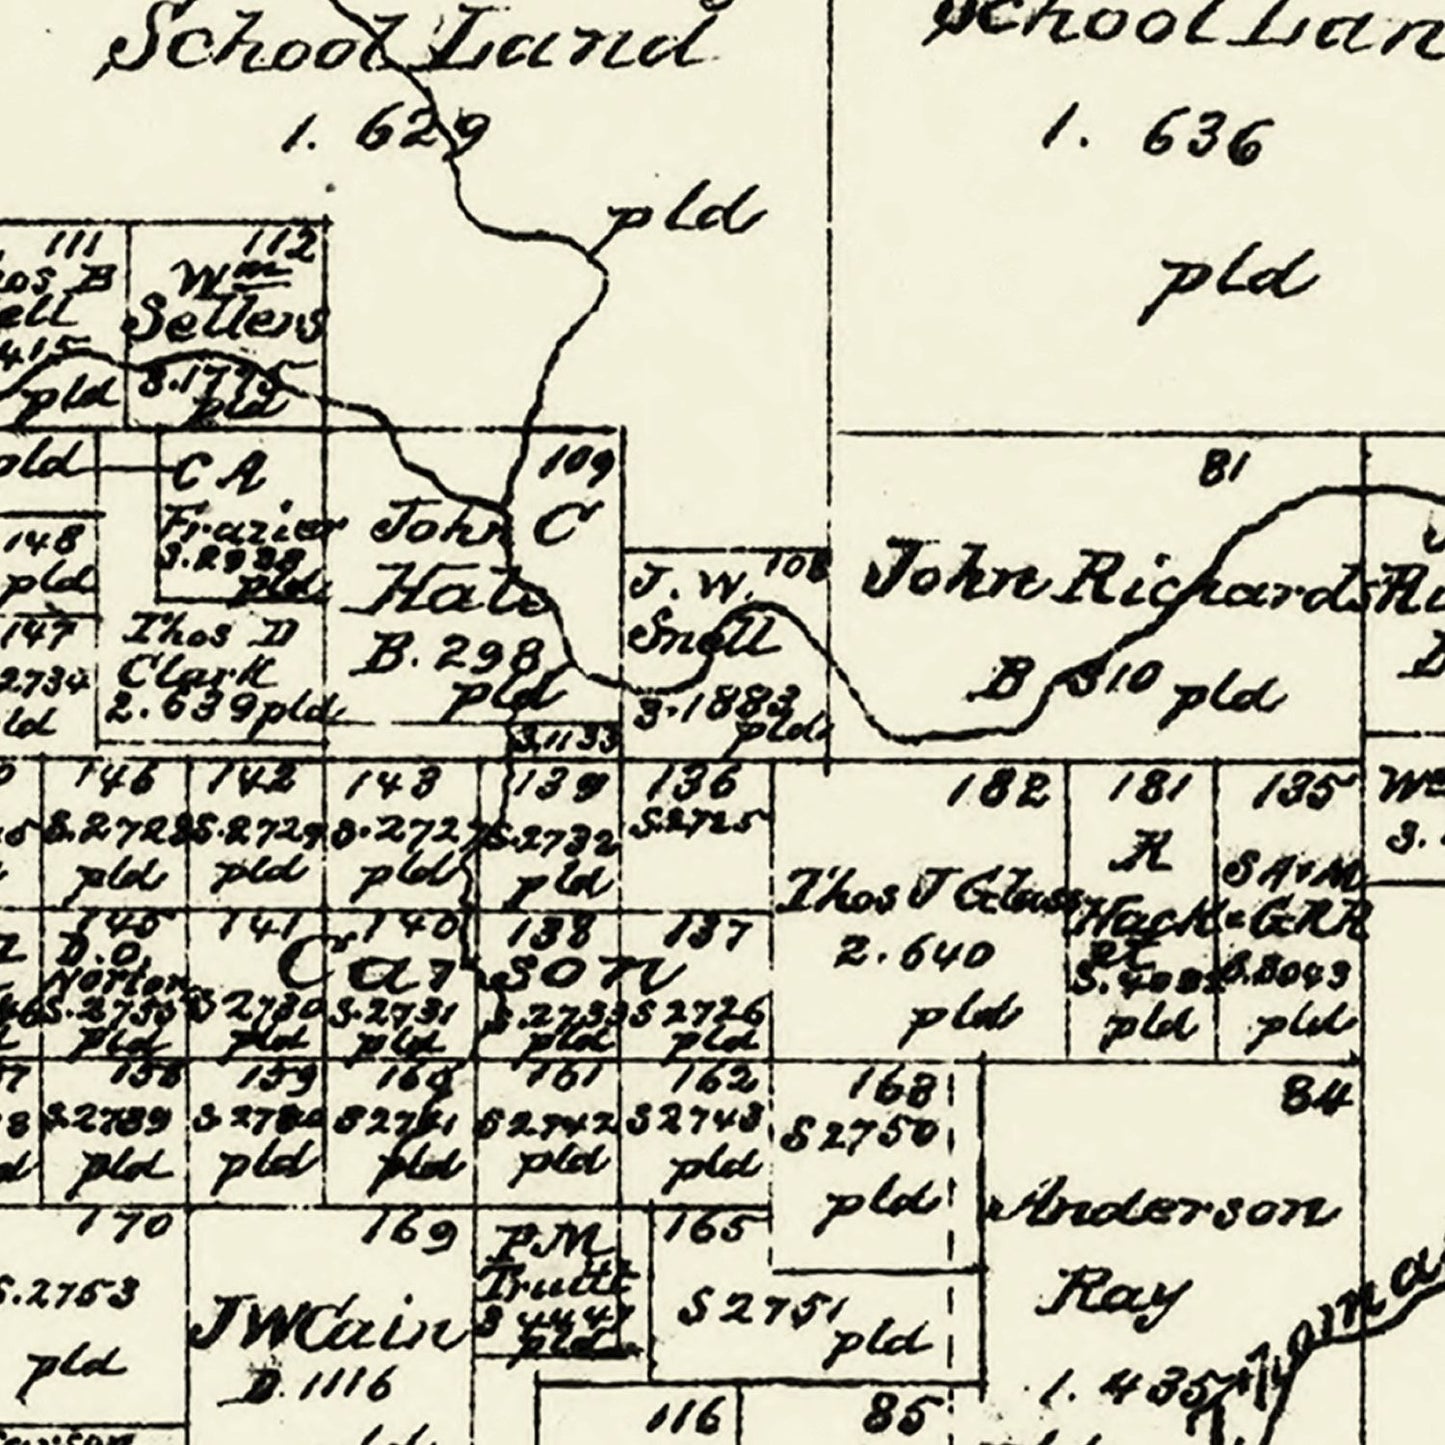 School Land
1. 629
pld
School Lan
1. 636
pld
111
os B
ell
415
pld
112
Wm
Sellers
S.1775
pld
pld
C A
Frazier
pld
148
pld
147
2734
ld
Thos D
Clark
2.639 pld
109
John C
Hale
B. 298
pld
S.1133
108
J. W.
Snell
S.1883
pld
81
John Richards
B 310 pld
146
S.2728
pld
142
S.2729
pld
143
S.2727
pld
139
S.2732
pld
136
S.2725
182
Thos J Glass
2.640
pld
181
R
Hack
pld
135
S A & M
G R R
S.3043
pld
145
D.O.
Norton
pld
141
S 2730
pld
140
S.2731
pld
138
S.2733
pld
137
S 2726
pld
Carson
158
S.2789
pld
159
pld
160
pld
161
S 2742
pld
162
S 2743
pld
168
S 2750
pld
84
Anderson
Ray
1. 435
170
S.2753
pld
169
J W Cain
D. 1116
P M
Truitt
S 4447
pld
165
S 2751
pld
116
85